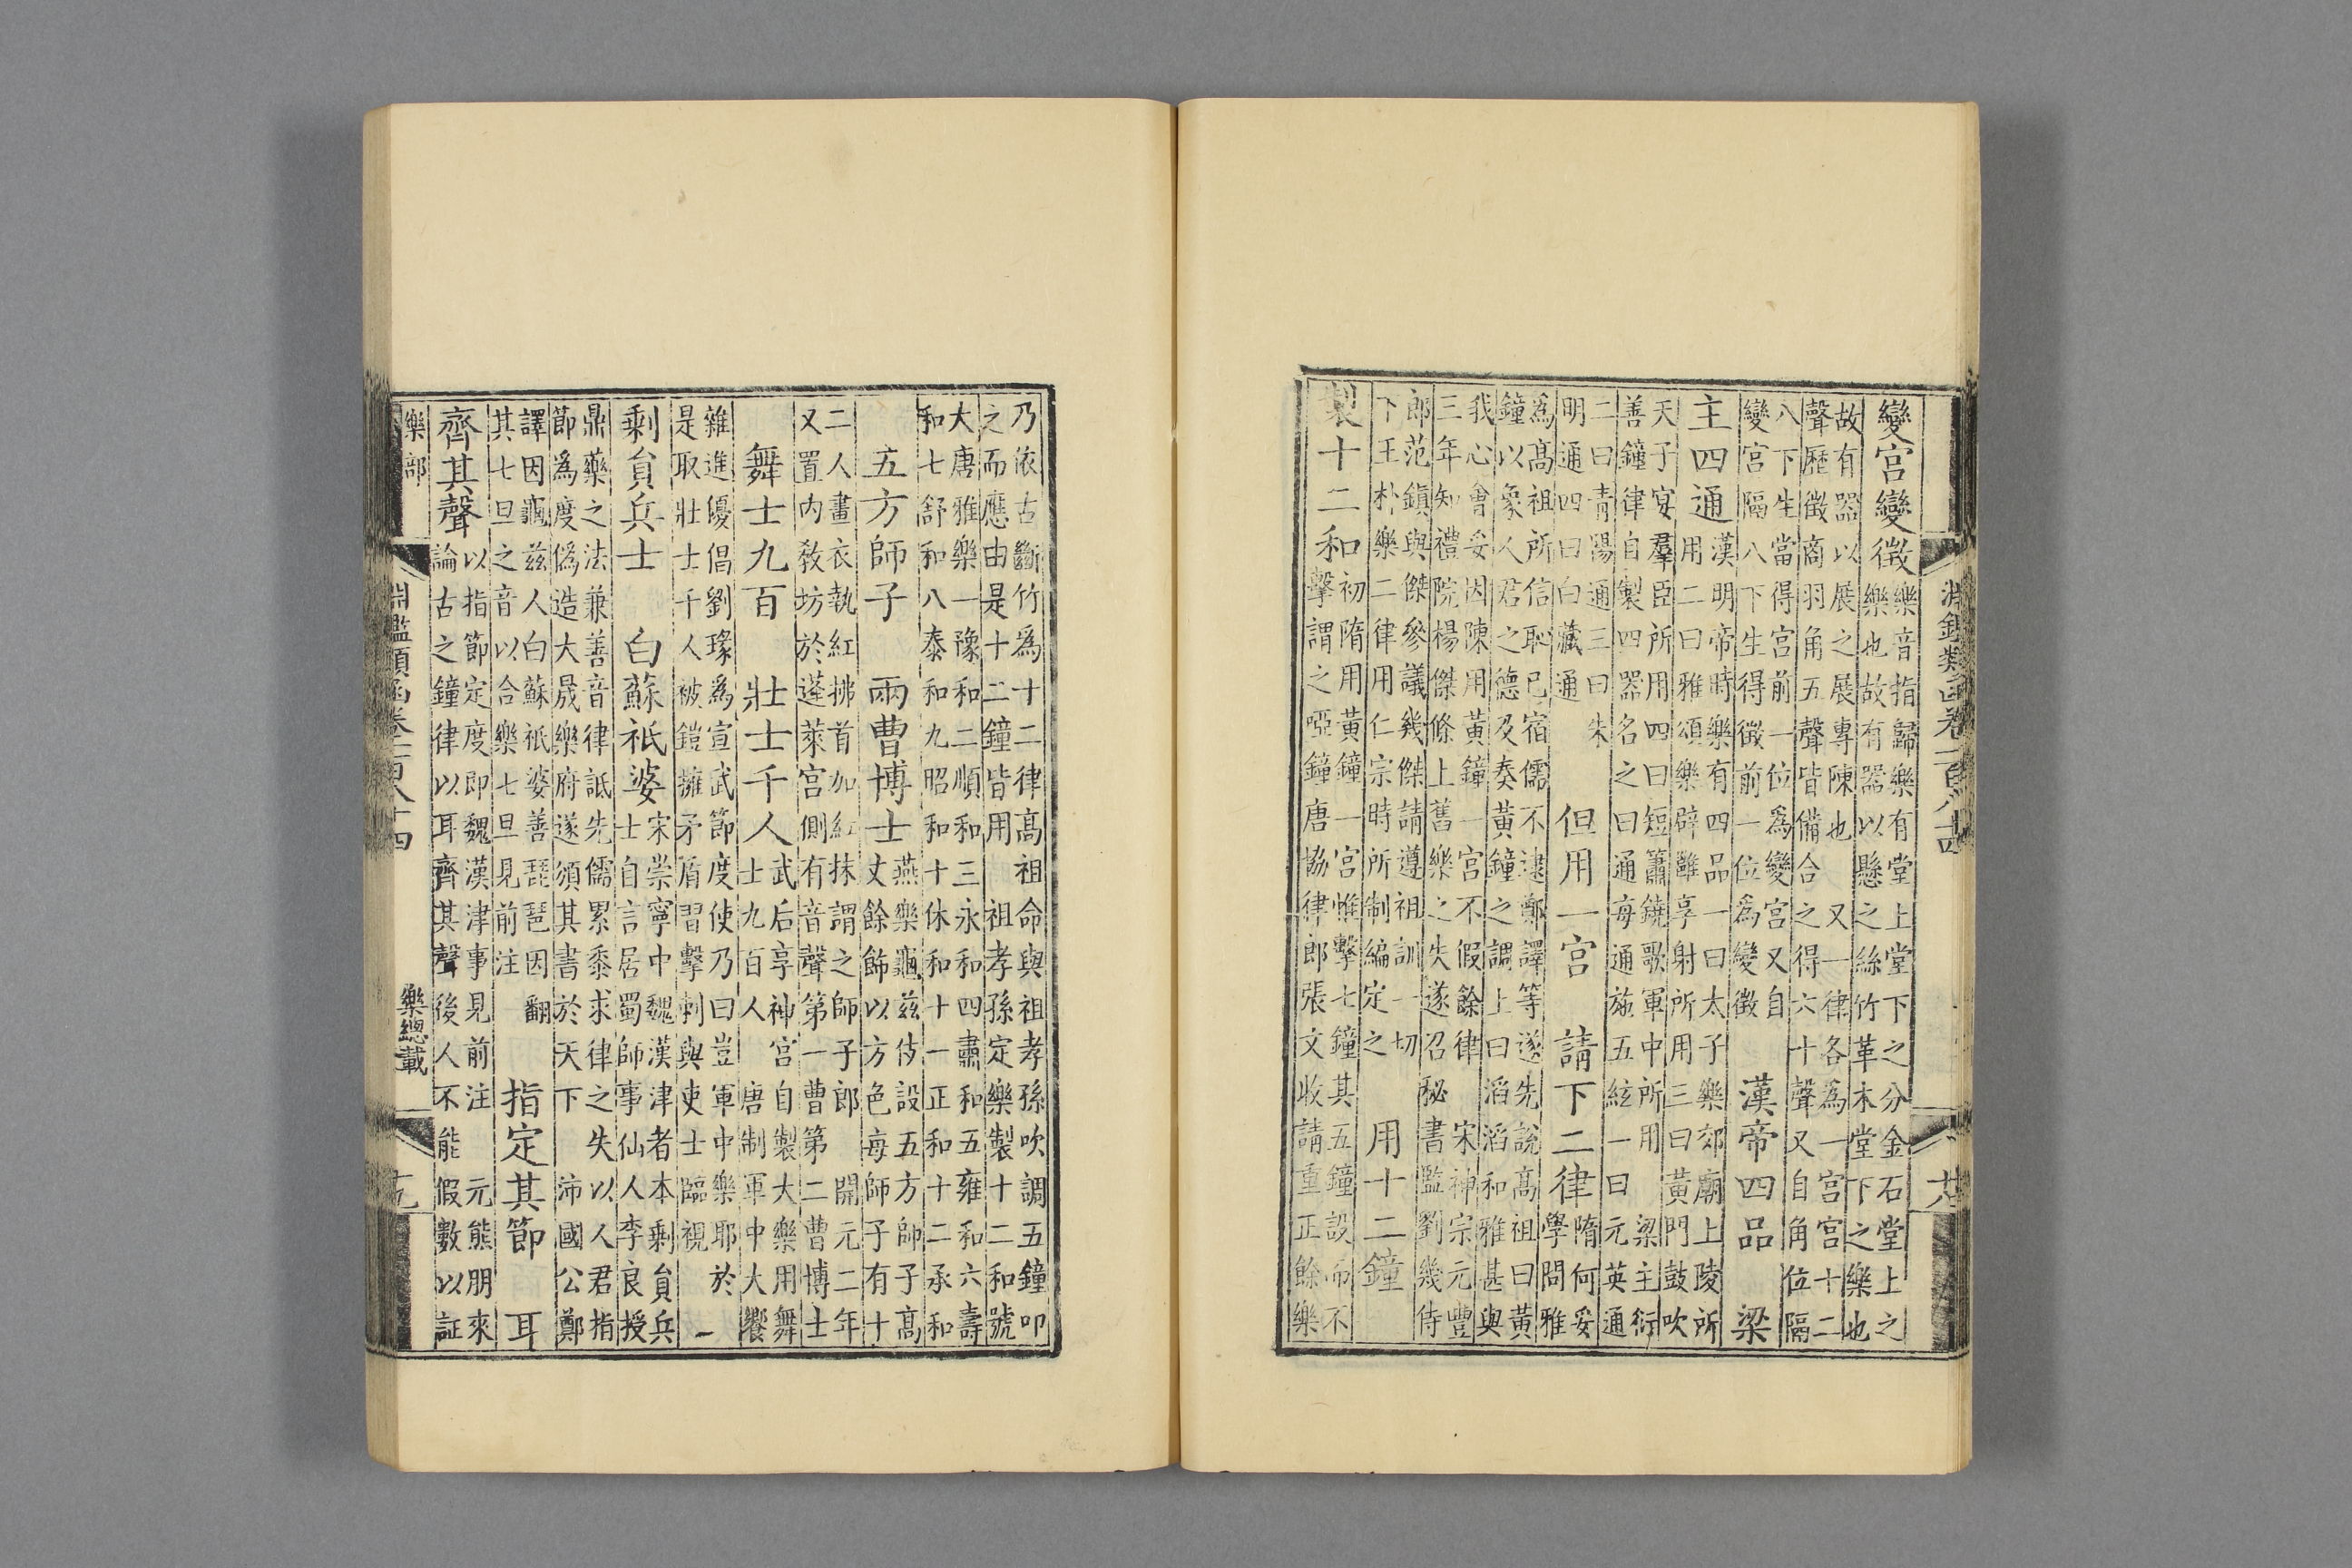 淵鑑類函卷一百八十四
變宮變徵 樂音指歸樂有堂上堂下之分金石堂上之
樂也故有器以懸之絲竹革木堂下之樂也
故有器以展之展專陳也 又一律各為一宮宮十二
聲歷徵商羽角五聲皆備合之得六十聲又自角位隔
八下生當得宮前一位為變宮又自
變宮隔八下生得徵前一位為變徵
漢帝四品 梁
主四通 漢明帝時樂有四品一曰太子樂郊廟上陵所
用二曰雅頌樂辟雝享射所用三曰黃門鼓吹
天子宴羣臣所用四曰短簫鐃歌軍中所用 梁主衍
善鐘律自製四器名之曰通每通施五絃一曰元英通
二曰青陽通三曰朱
明通四曰白藏通
但用一宮 請下二律 隋何妥
學問雅
為高祖所信恥已宿儒不逮鄭譯等遂先說高祖曰黃
鐘以象人君之德及奏黃鐘之調上曰滔滔和雅甚與
我心會妥因陳用黃鐘一宮不假餘律 宋神宗元豐
三年知禮院楊傑條上舊樂之失遂召秘書監劉幾侍
郎范鎮與傑參議幾傑請遵祖訓一切
下王朴樂二律用仁宗時所制編定之
用十二鐘
製十二和 初隋用黃鐘一宮惟擊七鐘其五鐘設而不
擊謂之啞鐘唐協律郎張文收請重正餘樂
乃依古斷竹為十二律高祖命與祖孝孫吹調五鐘叩
之而應由是十二鐘皆用 祖孝孫定樂製十二和號
大唐雅樂一豫和二順和三永和四肅和五雍和六壽
和七舒和八泰和九昭和十休和十一正和十二承和
五方師子 兩曹博士 燕樂龜茲伎設五方師子高
丈餘飾以方色每師子有十
二人畫衣執紅拂首加紅抹謂之師子郎 開元二年
又置内教坊於蓬萊宮側有音聲第一曹第二曹博士
舞士九百 壯士千人 武后享神宮自製大樂用舞
士九百人 唐制軍中大饗
雜進優倡劉瑑為宣武節度使乃曰豈軍中樂耶於
是取壯士千人被鎧擁矛盾習擊刺與吏士臨視 一
剩員兵士 白蘇祇婆 宋崇寧中魏漢津者本剩員兵
士自言居蜀師事仙人李良授
鼎藥之法兼善音律詆先儒累黍求律之失以人君指
節為度偽造大晟樂府遂頒其書於天下 沛國公鄭
譯因龜茲人白蘇祇婆善琵琶因翻
其七旦之音以合樂七旦見前注
指定其節 耳
齊其聲 以指節定度即魏漢津事見前注 元熊朋來
論古之鐘律以耳齊其聲後人不能假數以証
樂部 淵鑑類函卷一百八十四 樂總載